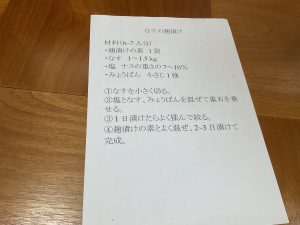 なすの麹漬け
材料（6~7人分）
・麹漬けの素 1袋
・なす 1～1.5kg
・塩 ナスの重さの7～10%
・みょうばん 小さじ1強
①なすを小さく切る。
②塩となす、みょうばんを混ぜて重石を乗
せる。
③1日漬けたらよく揉んで絞る。
④麹漬けの素とよく混ぜ、2~3日漬けて
完成。